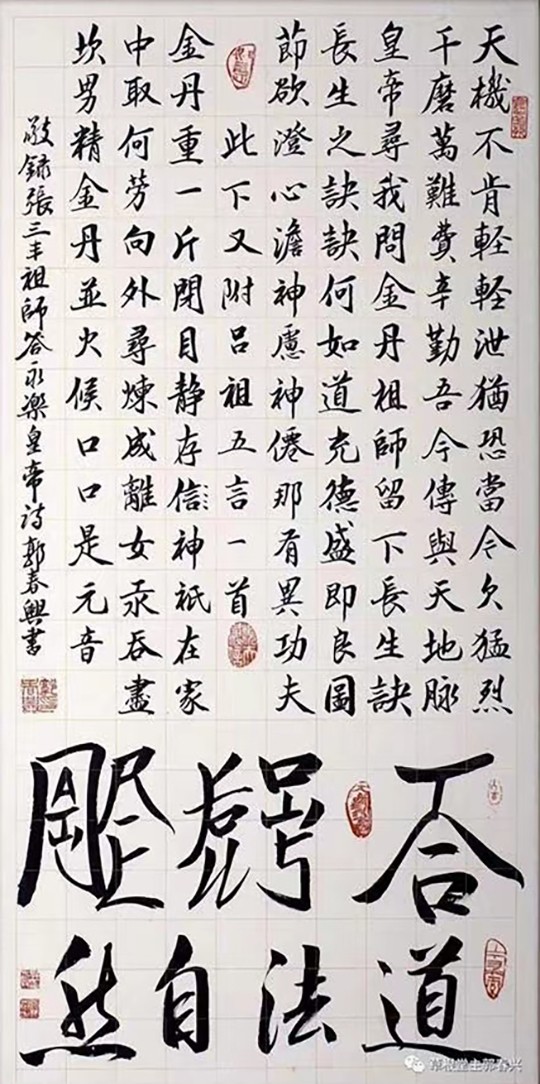 天機不肯軽軽泄猶恐當今欠猛烈
千磨萬難費辛勤吾今傳與天地脉
皇帝尋我問金丹祖師留下長生訣
長生之訣訣何如道充德盛即良圖
節欲澄心澹神慮神僊那有異功夫
此下又附吕祖五言一首
金丹重一斤閉目静存信神祇在家
中取何劳向外尋煉成離女汞吞盡
坎男精金丹並火候口口是元音
敬錄張三丰祖師答永樂皇帝詩郭春興書
道法自然
草根堂主郭春兴